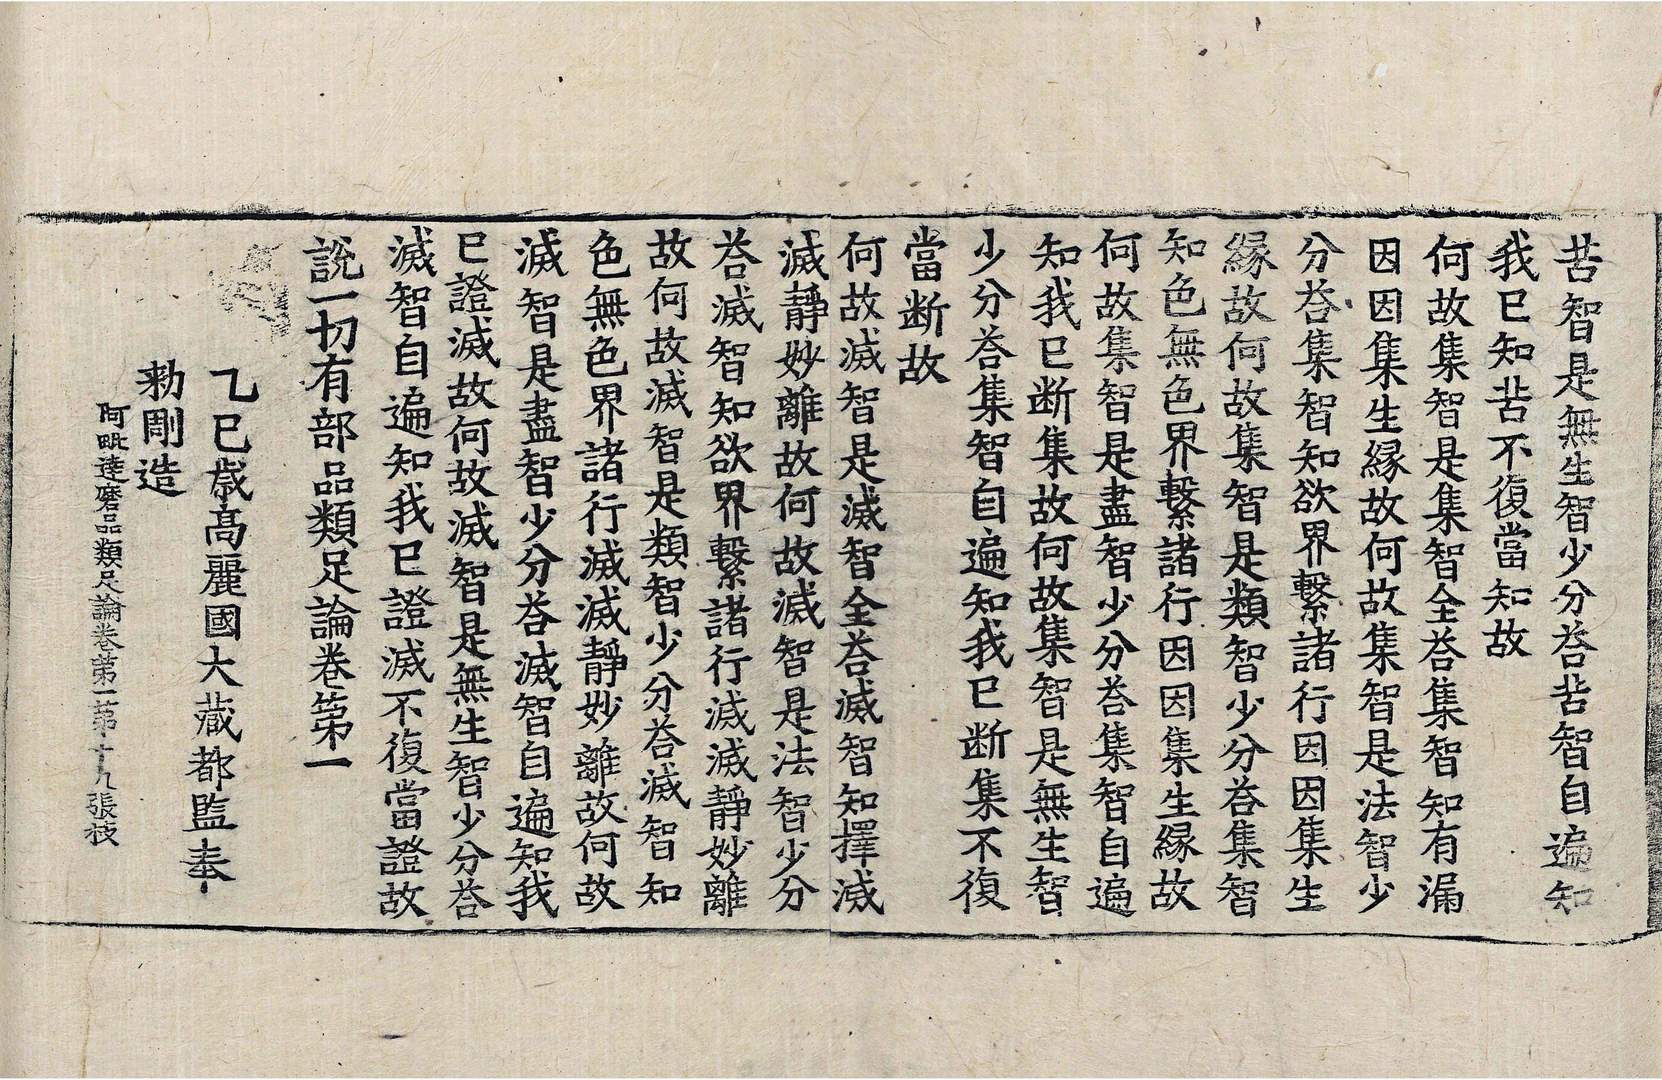 苦智是無生智少分荅苦智自遍知
我已知苦不復當知故
何故集智是集智全荅集智知有漏
因因集生縁故何故集智是法智少
分荅集智知欲界繋諸行因因集生
縁故何故集智是類智少分荅集智
知色無色界繋諸行因因集生縁故
何故集智是盡智少分荅集智自遍
知我已断集故何故集智是無生智
少分荅集智自遍知我已断集不復
當断故
何故滅智是滅智全荅滅智知擇滅
滅静妙離故何故滅智是法智少分
荅滅智知欲界繋諸行滅滅静妙離
故何故滅智是類智少分荅滅智知
色無色界諸行滅滅静妙離故何故
滅智是盡智少分荅滅智自遍知我
已證滅故何故滅智是無生智少分荅
滅智自遍知我已證滅不復當證故
說一切有部品類足論卷第一
乙巳歳高麗國大藏都監奉
勑剛造
阿毗達磨品類足論卷第一第十九張枝